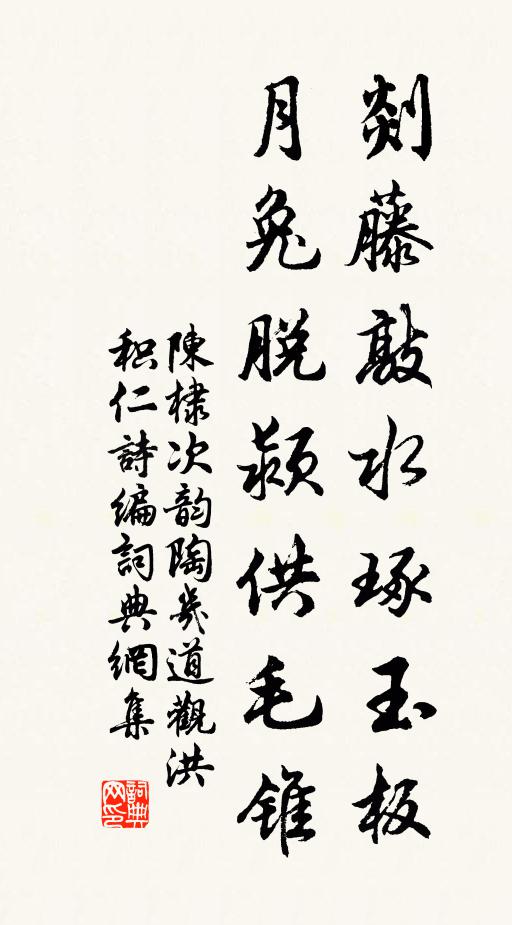 剡藤敲水琢玉板
月兔脱颖供毛錐
陳棣次韵陶幾道觀洪
积仁詩编詞典網集
詞典网印